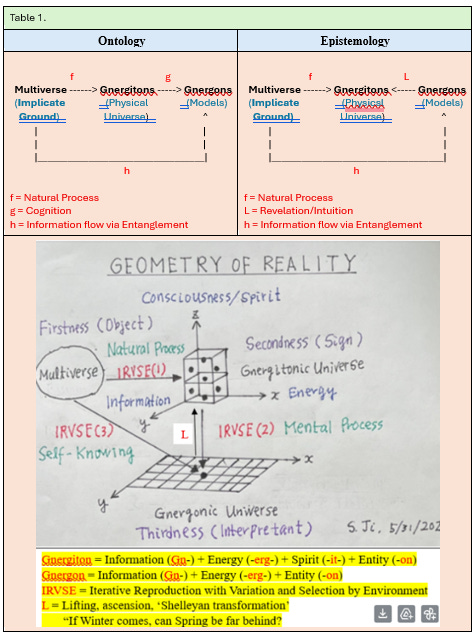 Table 1.
Ontology
Epistemology
f g
Multiverse -----> Gnergitons -----> Gnergons
(Implicate (Physical (Models)
Ground) Universe) ^
h
f = Natural Process
g = Cognition
h = Information flow via Entanglement
f L
Multiverse -----> Gnergitons <----- Gnergons
(Implicate (Physical (Models)
Ground) Universe) ^
h
f = Natural Process
L = Revelation/Intuition
h = Information flow via Entanglement
GEOMETRY OF REALITY
Consciousness/Spirit
z
Firstness (Object)
Secondness (Sign)
Natural Process
Multiverse
IRVSE(1)
Gnergitonic Universe
x Energy
Information
y
IRVSE(3)
L
IRVSE(2) Mental Process
Self-Knowing
x
y
Gnergonic Universe
Thirdness (Interpretant)
S. Ji, 5/31/202
Gnergiton = Information (Gn-) + Energy (-erg-) + Spirit (-it-) + Entity (-on)
Gnergon = Information (Gn-) + Energy (-erg-) + Entity (-on)
IRVSE = Iterative Reproduction with Variation and Selection by Environment
L = Lifting, ascension, ‘Shelleyan transformation’
“If Winter comes, can Spring be far behind?